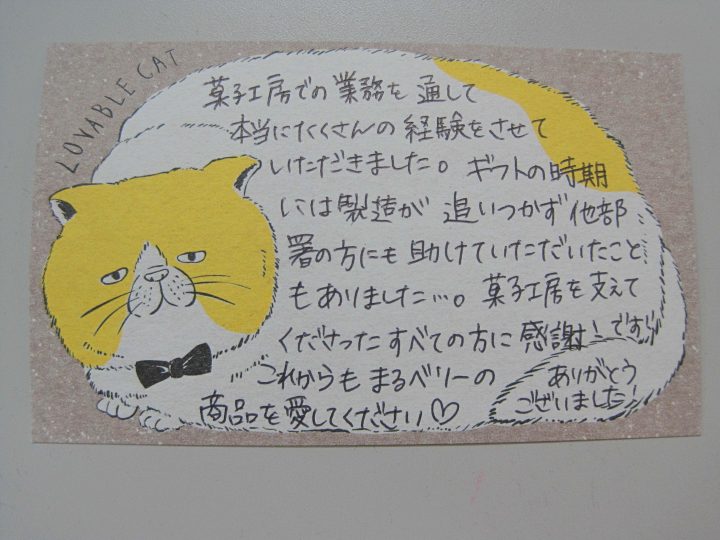 LOVABLE CAT
菓子工房での業務を通して
本当にたくさんの経験をさせて
いただきました。ギフトの時期
には製造が追いつかず他部
署の方にも助けていただいたこと
もありました…。菓子工房を支えて
くださったすべての方に感謝です!
これからもまるベリーの
商品を愛してください♡
ありがとう
ございました!